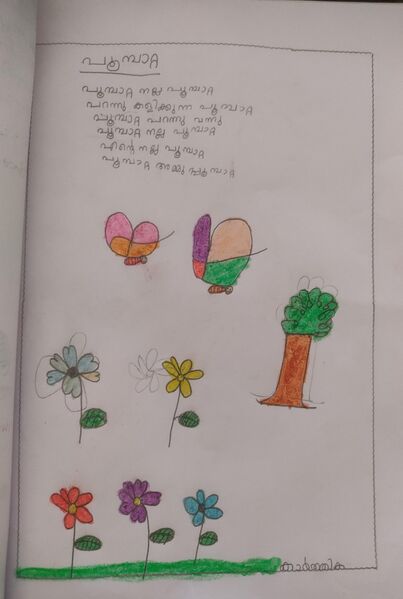 പൂമ്പാറ്റ
പൂമ്പാറ്റ നല്ല പൂമ്പാറ്റ
പറന്നു കളിക്കുന്ന പൂമ്പാറ്റ
പൂമ്പാറ്റ പറന്നു വന്നു
പൂമ്പാറ്റ നല്ല പൂമ്പാറ്റ
എന്റെ നല്ല പൂമ്പാറ്റ
പൂമ്പാറ്റ അമ്മുപ്പൂമ്പാറ്റ
കാർത്തിക